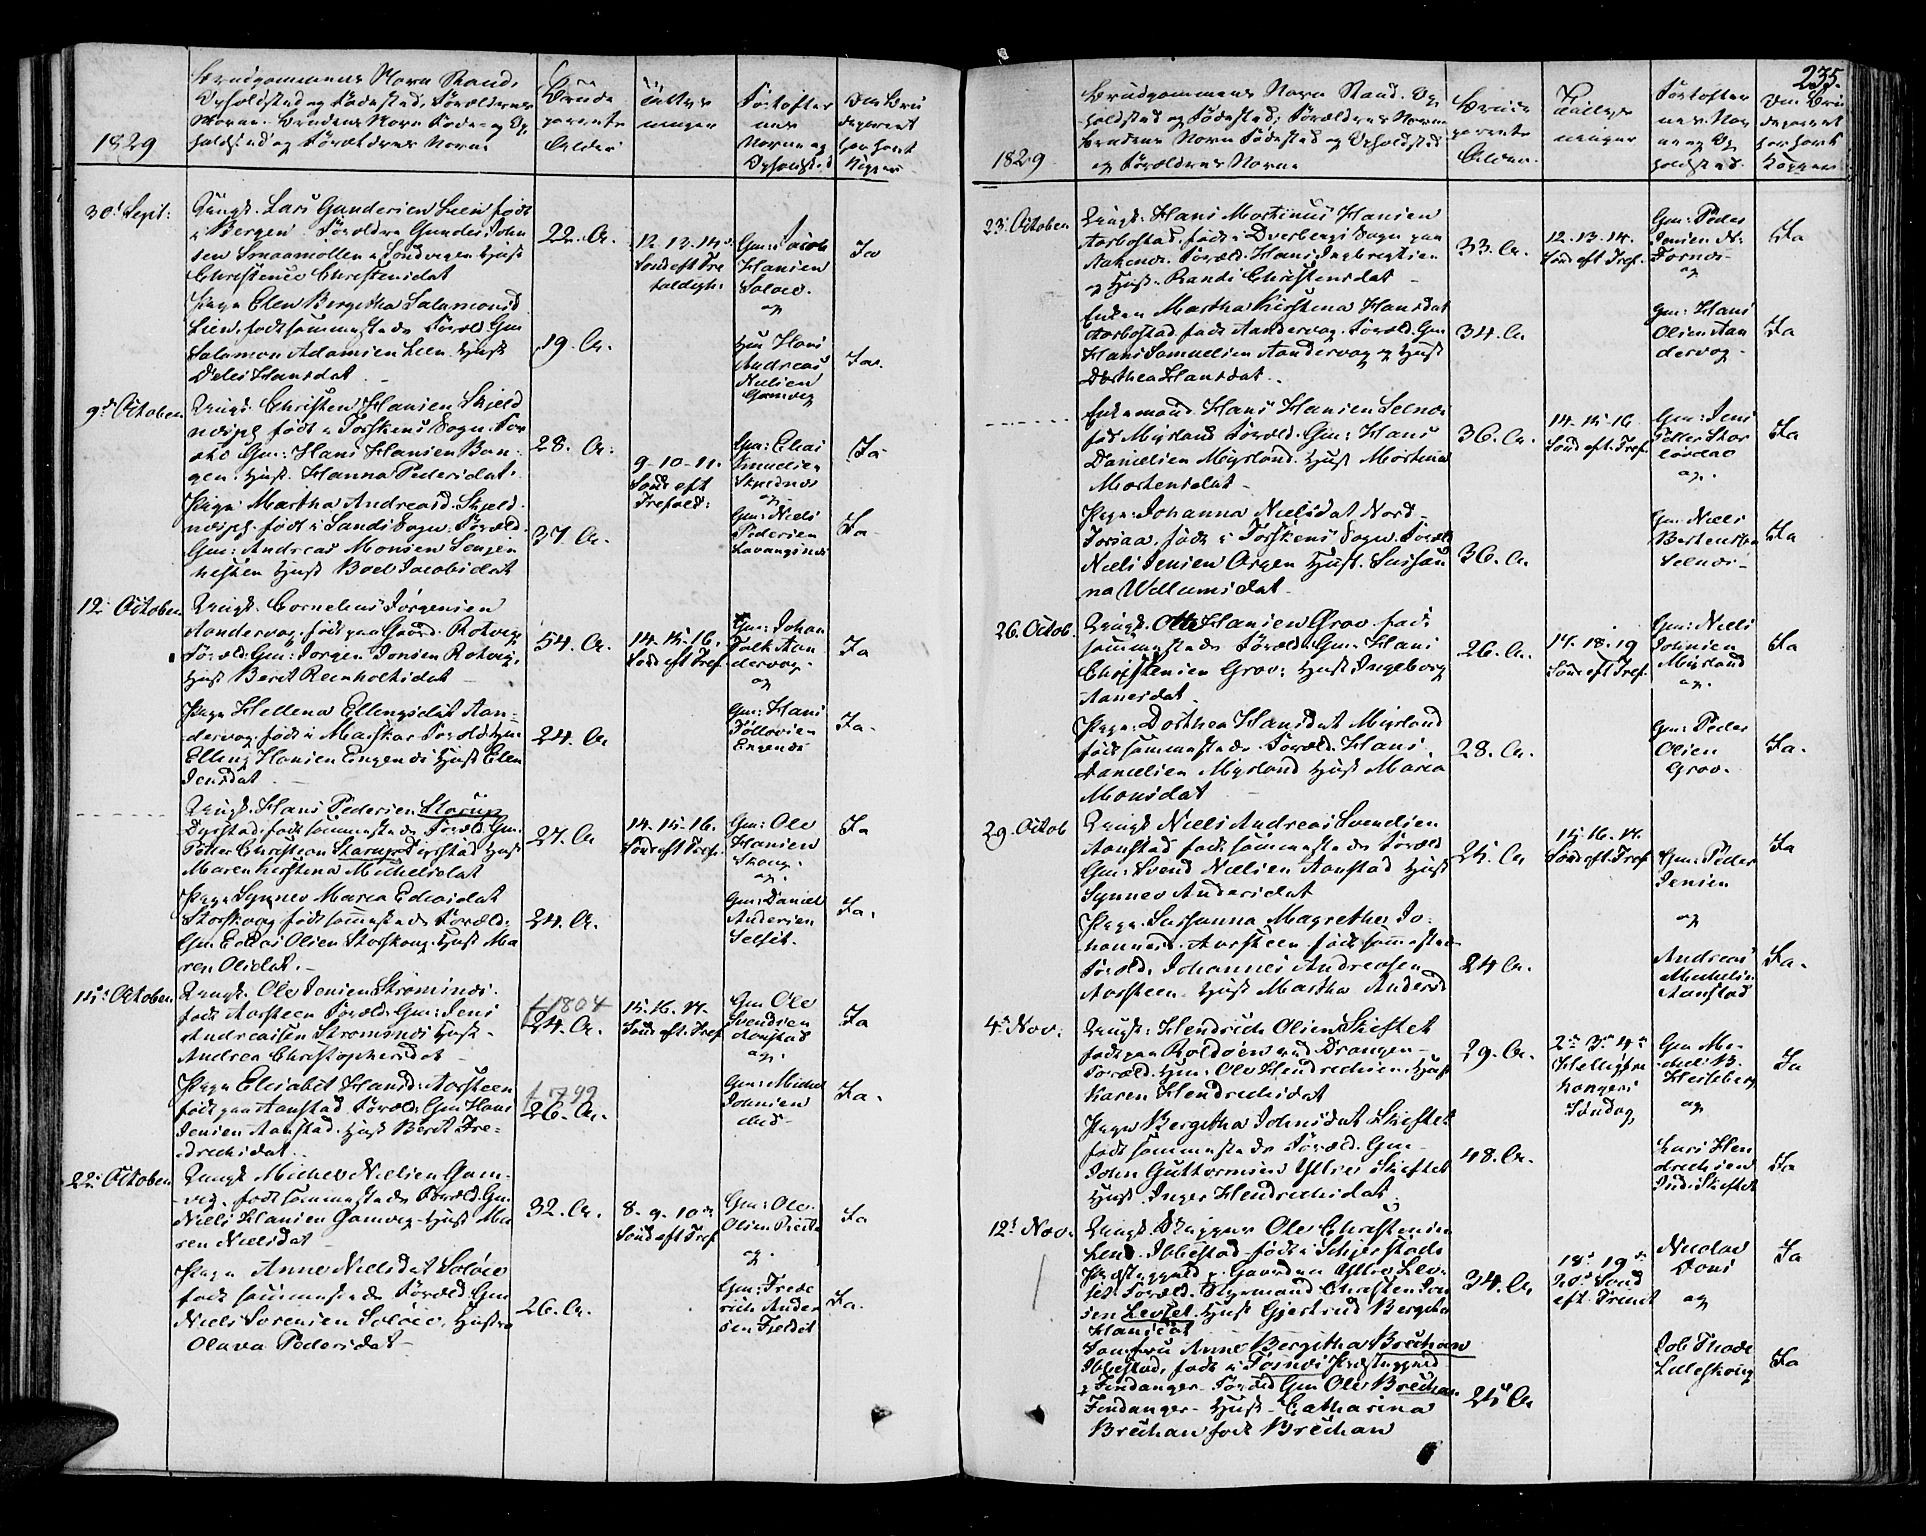 1829
Brudgommens Navn Stand,
Opholdsted og Fødested, Forældrenes
Navne. Brudens Navn Føde- og Op
holdsted og Forældres Navne
Brude
parrets
Alder
Tillys
ninger
Forlofter
nes
Navne og
Opholdsted
Om Bru
deparret
har havt
Kopper
30' Sept:
Ungk. Lars Gundersen Leen født
i Bergen. Forældre Gunder John
sen Smaamøllen i Sandvigen Hust
Christence Christensdat
22. A.
12-13-14
Sønd eft Tre
foldigh:
Gm: Jacob
Hansen
Soløe.
og
Ja
Pige Elen Bergitha Salamonsd
Leen, født sammesteds Foræld. Gm
Salamon Adamsen Leen. Hust
Hansdat
19. A.
Hans
Andreas
Nielsen
Gamvig
Ja
9de October
Ungk. Christen Hansen Skjeld
født i Torskens Sogn. For
Gm: Hans Hansen Ban
gen. Hust. Hanna Pedersdat.
28. A.
9-10-11.
Sønd eft
Trefold:
Gm: Elias
Knudsen
Skjelnæs
og
Ja
Pige Martha Andreasd. Skjeld
født i Sands Sogn. Foræld.
Gm: Andreas Monsen Senjen
hesten Hust Boel Jacobsdat
37. A.
Gm: Niels
Pedersen
Lavangsnæs
Ja
12. October
Ungk. Cornelius Jørgensen
Aandervog. født paa Gaard. Rotvig
Foræld: Gm: Jørgen Jonsen Rotvig,
Hust Beret Reinholtsdat
54. A.
14-15-16.
Sønd eft Tref.
Gm: Johan
Falk Aan
dervog.
og
Ja
Pige Hellena Ellingsdat Aan-
dervog. født i Foræld. Gm
Elling Hansen Engenæs Hust Elen
Jensdat
24. A.
Gm: Hans
Tollevsen
Engenæs
Ja.
Ungk. Hans Pedersen Starup
Dyrstad. født sammesteds Foræld. Gm.
Peder Christian Starup Dyrstad Hust
Maren Kirstina Michelsdat
27. A.
14-15-16.
Sønd eft Tref.
Gm: Ole
Hansen
Skoug.
og.
Ja
Pige Synnev Maria Eliasdat
Storskoug født sammesteds Foræld:
Gm. Elias Olsen Storskoug. Hust Ma
ren Olsdat.
24. A.
Gm: Daniel
Andersen
Selset.
Ja.
15de October
Ungk. Ole Jensen Strømsnæs.
født Aarsteen Foræld. Gm: Jens
Andreassen Strømsnæs Hust
Andrea Christophersdat
f. 1804
24. A.
15-16-17.
Sønd eft. Tref
Gm Ole
Svendsen
Aanstad
og.
Ja
Pige Elisabet Hansd. Aarsteen
født paa Aanstad. Foræld. Gm Hans
Jensen Aanstad. Hust Beret Fre-
drechsdat.
26. A.
Gm: Michel
Johnsen
ibid-
Ja.
22. October
Ungk Michel Nielsen Gam-
vig. født sammesteds Foræld. Gm
Niels Hansen Gamvig Hust Ma
ren Nielsdat
32. A.
8-9-10de
Sønd eft Tref
Gm: Ole
Olsen
og.
Ja
Pige Anne Nielsdat Soløe
født sammesteds Foræld. Gm
Niels Sørensen Soløe, Hustr
Olava Pedersdat
26. A.
Gm: Frede
rich Ander
sen Fjeldet
Ja.
235.
1829
Brudgommens Navn Stand. Op
holdsted og Fødested; Forældrenes Navne
Brudens Navn Fødested og Opholdsted
og Forældrenes Navne
Brude
parrets
Alder.
Tillys
ninger
Forlofter
nes Nav
ne og Op
holdsted.
Om Bru
deparret
har havt
Kopper
23' October
Ungk: Hans Mortinus Hansen
Aarbostad. født i Dverbergs Sogn paa
Foræld. Hans Ingebregtsen
og Hust. Randi Christensdat
33. A.
12.13.14.
Sønd eft Tref.
Gm: Peder
Jensen N:
Fornæs
og
Ja
Enken Martha Kirstina Hansdat
Aarbostad. født Aandervog. Foræld. Gm
Hans Samuelsen Aandervog og Hust
Dorthea Hansdat.
34. A
Gm: Hans
Olsen Aan
dervog
Ja
Enkemand. Hans Hansen Selnæs
født Myrland Foræld. Gm: Hans
Danielsen Myrland. Hust Martina
Mortensdat
36. A.
14-15-16
Sønd eft. Tref
Gm: Jens
og.
Ja
Pige: Johanna Nielsdat Nord
født i Torskens Sogn. Foræld
Niels Jensen Hust. Sussan
na Wellumsdat.
36. A.
Gm: Niels
Selnæs
Ja
26. Octob.
Ungk. Ole Hansen Grov. født
sammesteds Foræld. Gm. Hans
Christensen Grov: Hust Ingeborg
Aanesdat.
26. A.
17.18.19
Sønd eft Tref.
Gm: Niels
Johnsen
Myrland
og.
Ja
Pige: Dorthea Hansdat Myrland
født sammesteds. Foræld. Hans
Danielsen Myrland Hust Maria
Monsdat
28. A.
Gm: Peder
Olsen
Grov.
Ja.
29. Octob
Ungk Niels Andreas Svendsen
Aanstad født sammesteds Foræld
Gm: Svend Nielsen Aanstad Hust
Synnev Andersdat
25. A
15.16.17.
Sønd eft. Tref
Gm: Peder
Jensen
og
Ja
Pige. Susanna Magrethe Jo-
hannesd. Aarsteen. født sammesteds
Foræld. Johannes Andreasen
Aarsteen. Hust Martha Andersd
24 A.
Andreas
Michelsen
Aanstad
Ja.
4de Nov.
Ungk: Hendrich Olsen Skeftet
født paa Roldøen ved Drangen
Foræld. Gm: Ole Hendrechsen Hust
Karen Hendrechsdat
29. A.
2de 3de 4de
Helligtre
kongers
Søndag
Gm Mi-
chel B.
og
Ja
Pige Bergitha Johnsdat Skeftet
født sammesteds Foræld. Gm.
John Guttormsen Yttre Skeftet
Hust. Inger Hendrechsdat.
48. A.
Lars Hen
drechsen
Ind: Skeftet
Ja
12te Nov.
Ungk. Ole Christensen
Ibbestad. født i Skjerstads
Præstegjeld p. Gaarden Yttre Lev-
set. Foræld. Styrmand Christen Jon
sen Levset. Hust Gjertrud Bergitha
Hansdat
34. A
18' 19de
20de Sønd
eft. Trinit
Nicolay
Dons
og
Ja
Jomfru Anne Bergitha Breehan
Ibbestad, født i Præstegjeld
p. Findanger. Foræld Gm Ole Breehan
Findanger. Hust. Catharina
Breehan født Breehan
25 A
Job Thode
Luleskoug
Ja